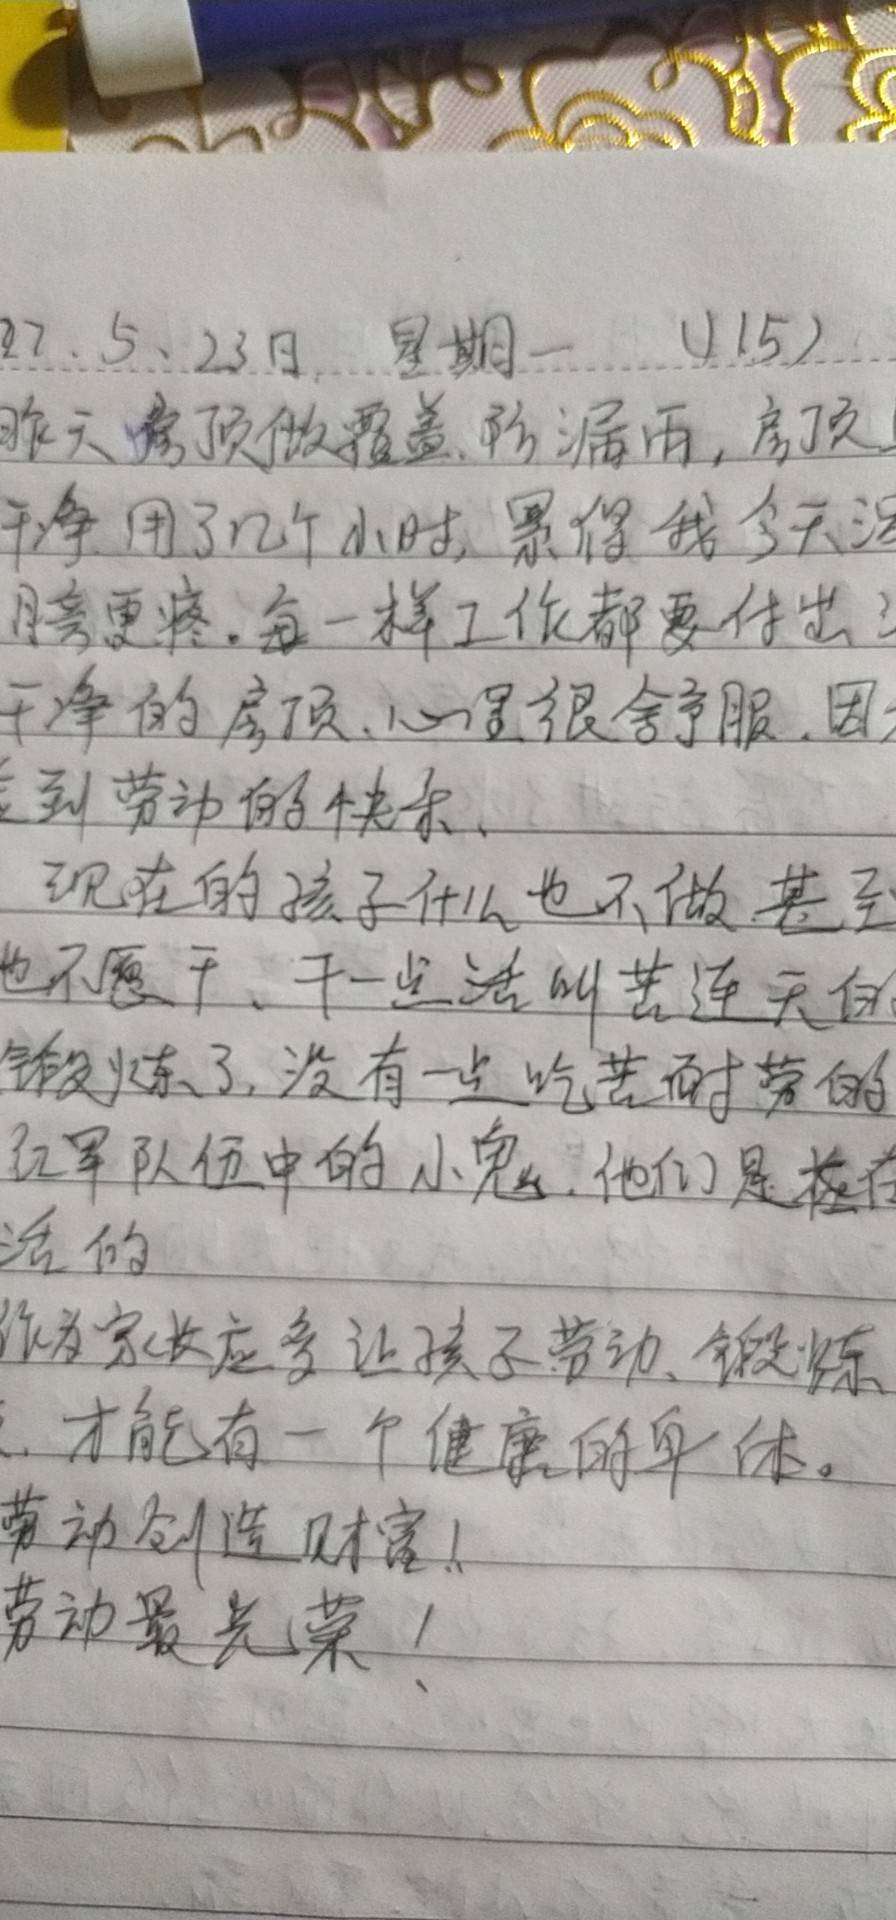 22.5、23日 星期一 (115)
昨天房顶做覆盖、防漏雨,房顶
干净.用了几个小时,累得我今天浑
膀更疼。每一样工作都要付出
干净的房顶、心里很舒服.因
到劳动的快乐、
现在的孩子什么也不做.甚至
也不愿干、干一点活叫苦连天的
锻炼了,没有一点吃苦耐劳的
红军队伍中的小鬼.他们是在
活的
作为家长应多让孩子劳动、锻炼
才能有一个健康的身体。
劳动创造财富!
劳动最光荣!